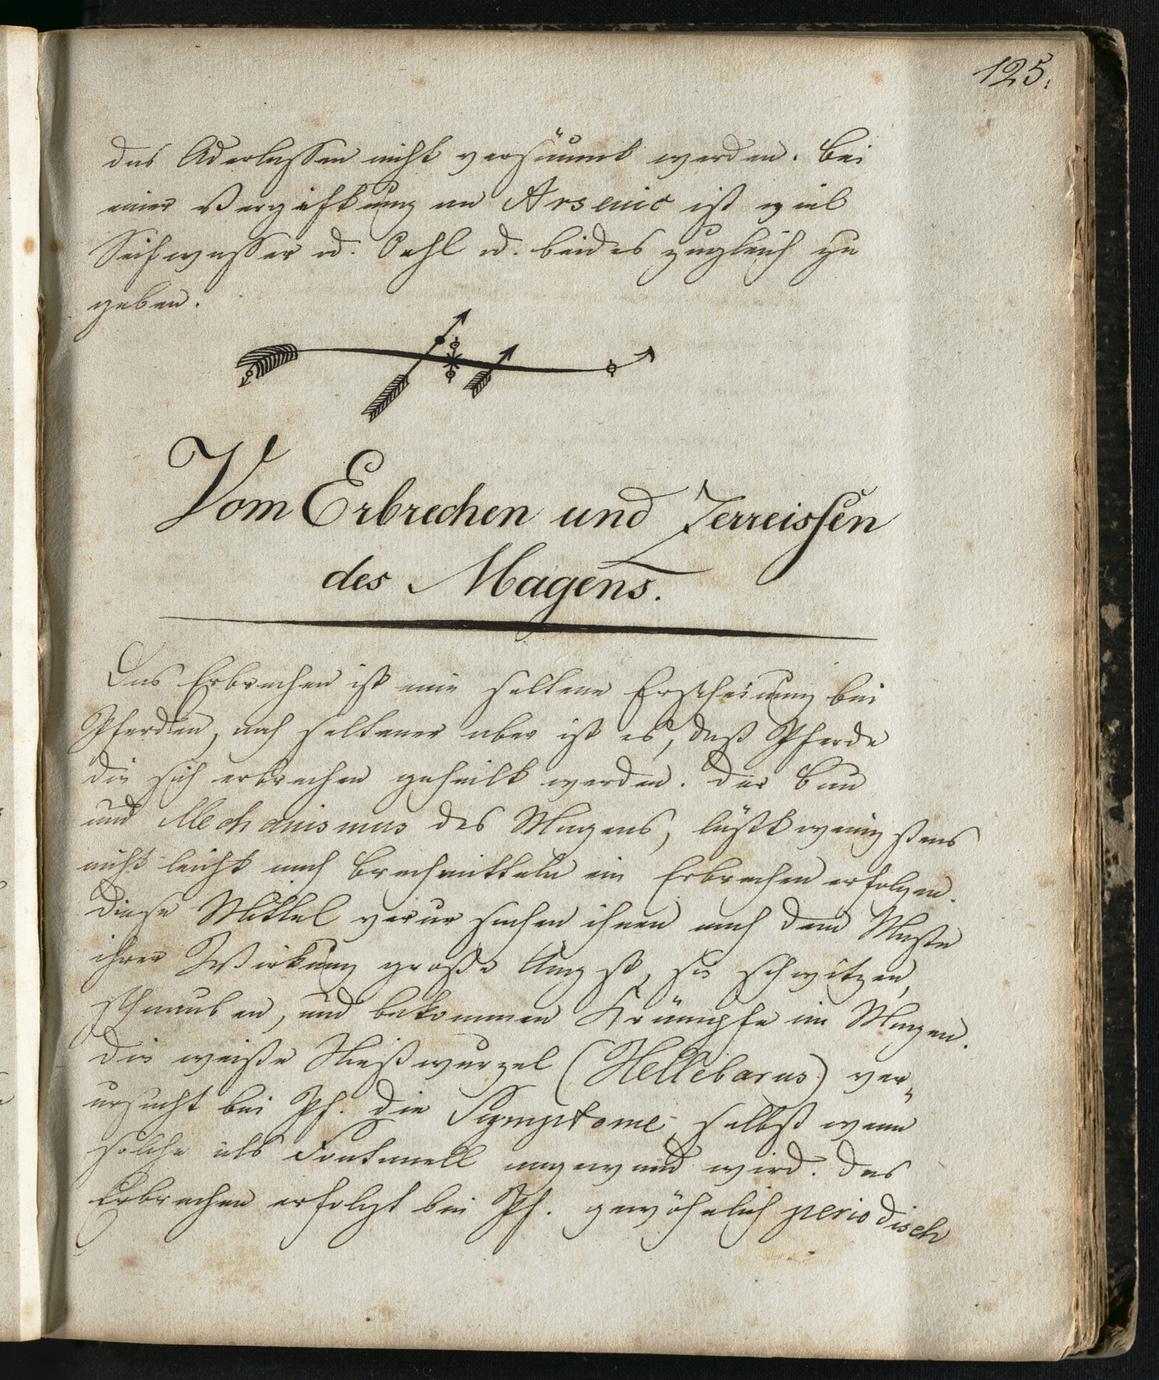 125.
das Aderlassen nicht versäumt werden. Bei
einer Vergiftung an Arsenic ist viel
Seifwasser od. Oehl od. beides zugleich zu
geben.
Vom Erbrechen und Zerreissen
des Magens.
Das Erbrechen ist eine seltene Erscheinung bei
Pferden, noch seltener aber ist es, daß Pferde
die sich erbrechen geheilt werden. Der Bau
und Mechanismus des Magens, läßt wenigstens
nicht leicht nach Brechmitteln ein Erbrechen erfolgen.
Diese Mittel verursachen ihnen nach dem Maße
ihrer Wirkung große Angst, sie schwitzen,
schnauben, und bekommen Krämpfe im Magen.
Die weiße Nießwurzel (Hellebarus) ver„
ursacht bei Pf. die Symptome selbst wenn
solche als Fontanell angewand wird. Das
Erbrechen erfolgt bei Pf. gewöhnlich periodisch